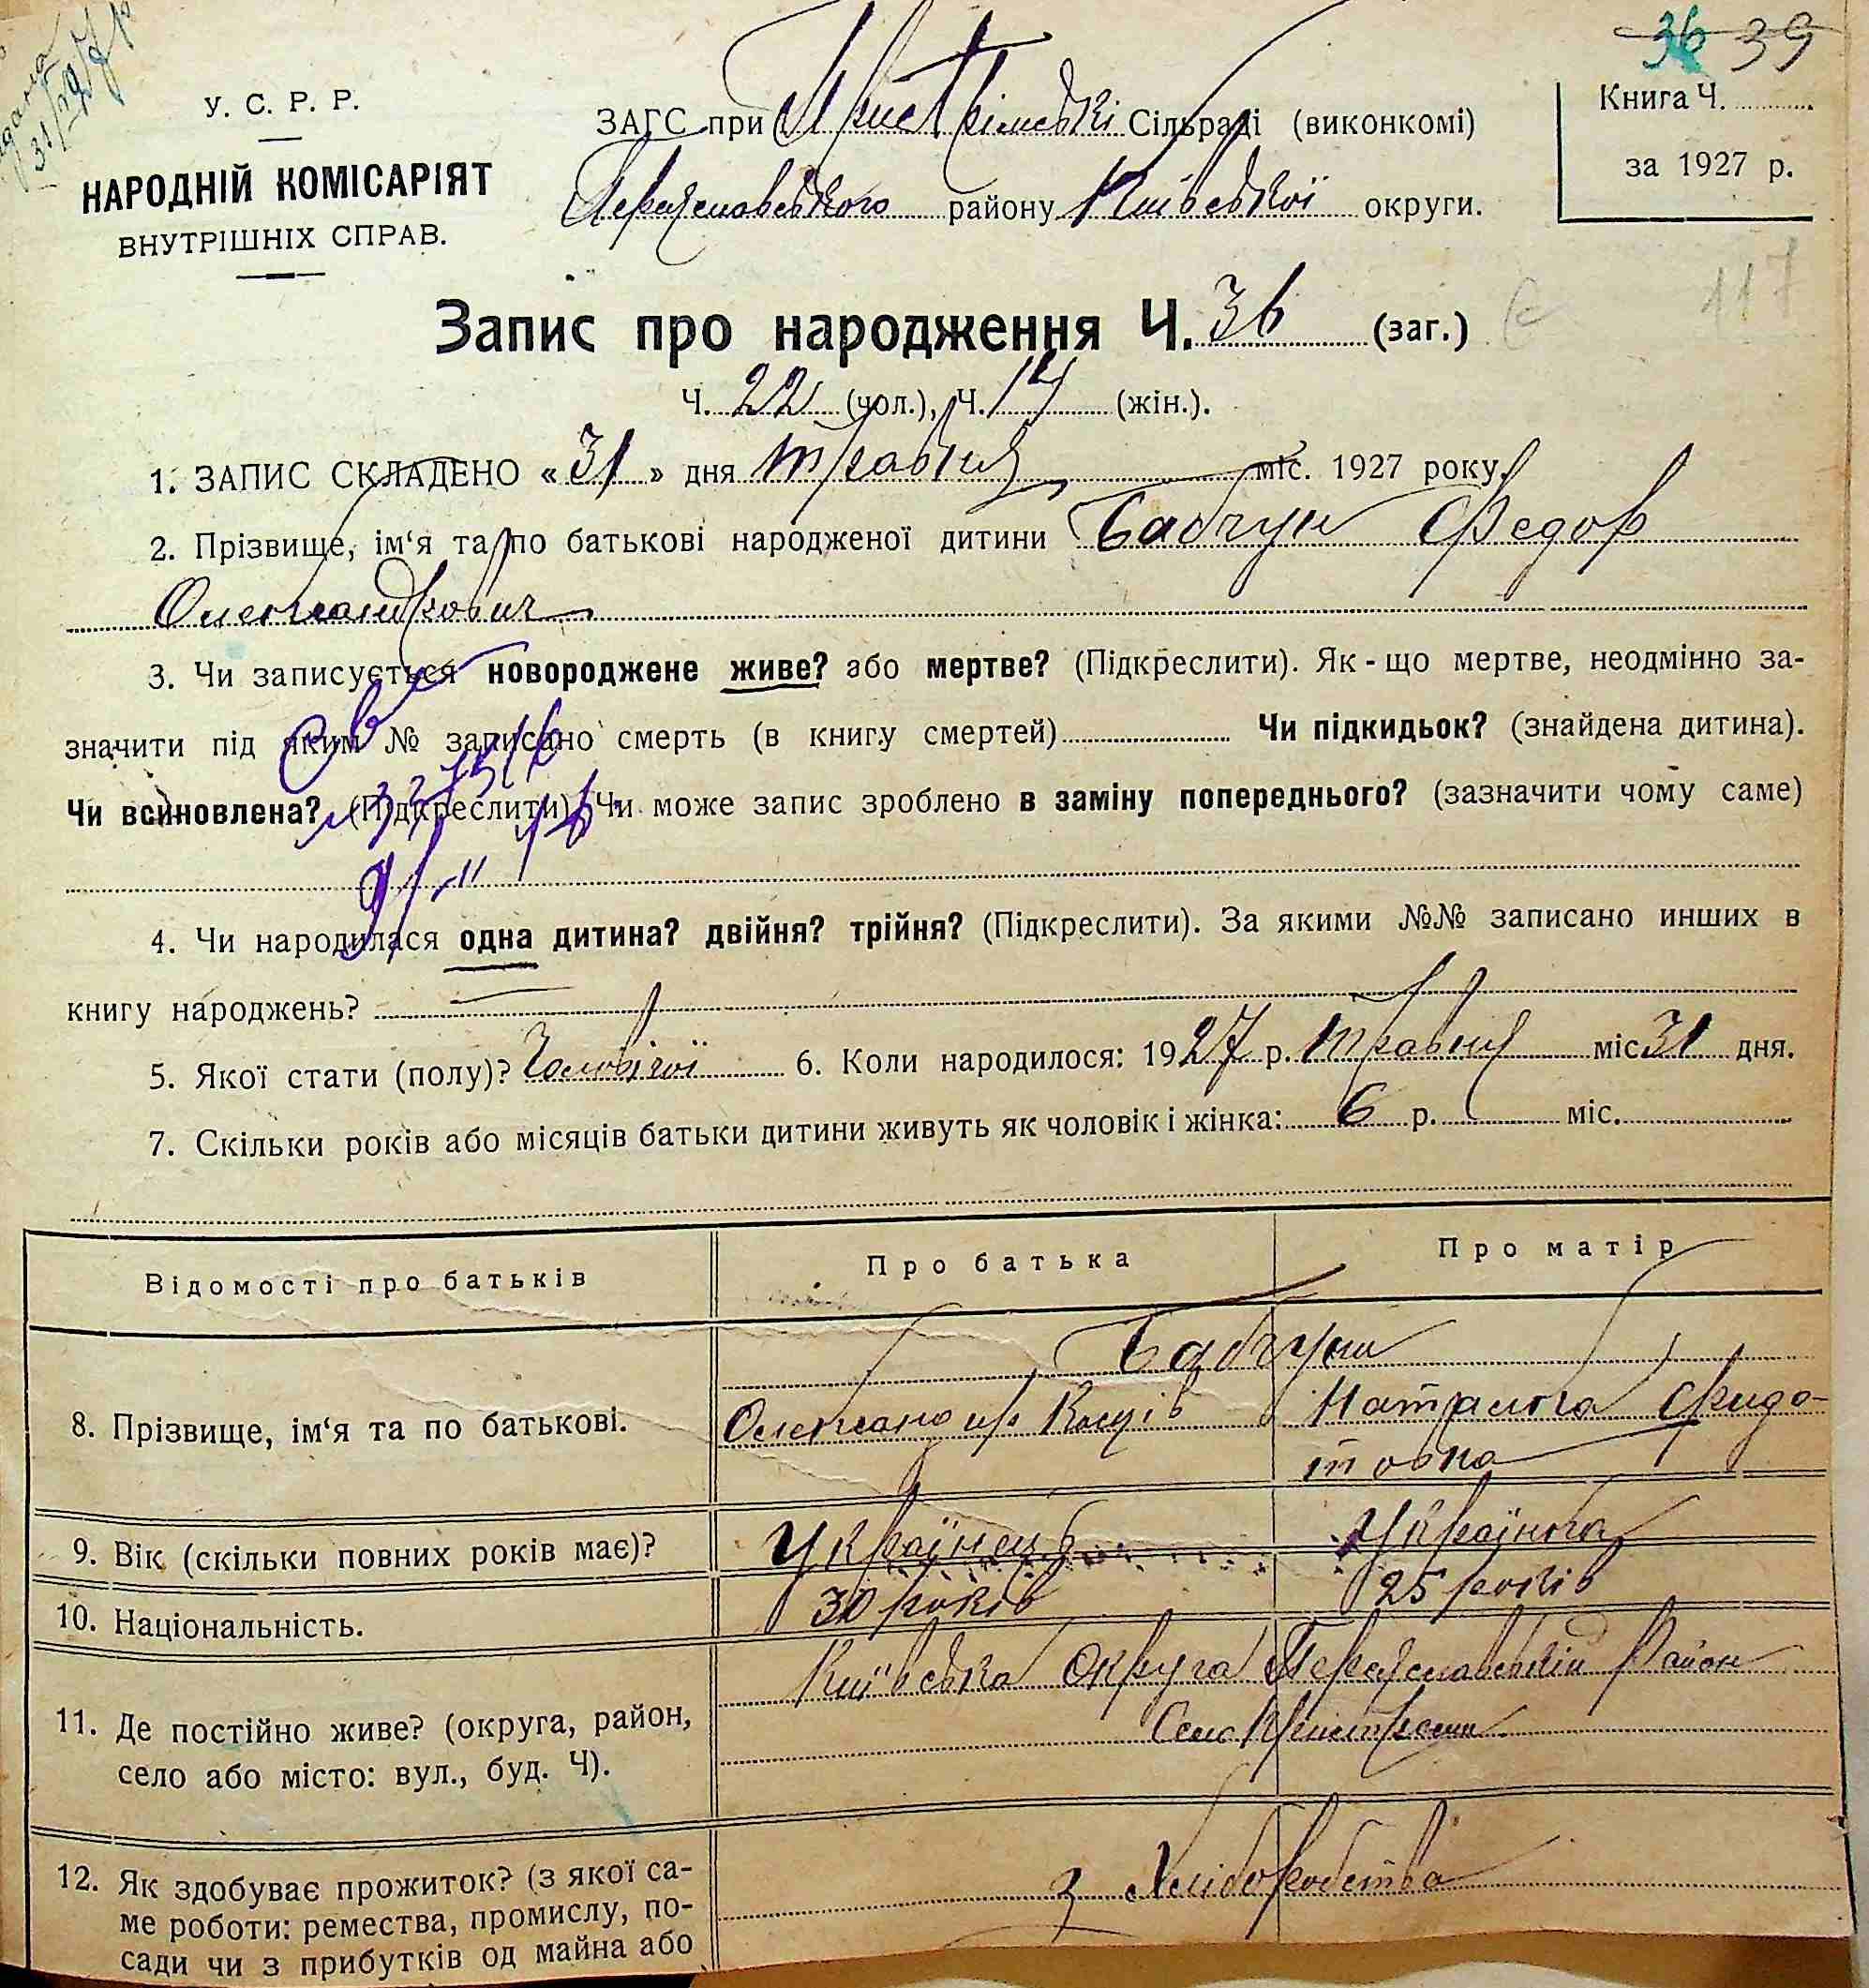 36 39
У. С. Р. Р.
НАРОДНІЙ КОМІСАРІЯТ
ВНУТРІШНІХ СПРАВ.
ЗАГС при Пристрімські Сільраді (виконкомі)
Переяславського району Київської округи.
Книга Ч.
за 1927 р.
117
Запис про народження Ч. 36 (заг.)
Ч. 22 (чол.), Ч. 14 (жін.).
1. ЗАПИС СКЛАДЕНО «31» дня травня міс. 1927 року.
2. Прізвище, ім‘я та по батькові народженої дитини Бабчун Федор
Олександрович
3. Чи записується новороджене живе? або мертве? (Підкреслити). Як-що мертве, неодмінно за-
значити під яким № записано смерть (в книгу смертей) Чи підкидьок? (знайдена дитина).
Чи всиновлена? (Підкреслити) Чи може запис зроблено в заміну попереднього? (зазначити чому саме)
4. Чи народилася одна дитина? двійня? трійня? (Підкреслити). За якими №№ записано инших в
книгу народжень?
5. Якої стати (полу)? Чоловічої 6. Коли народилося: 1927 р. травня міс 31 дня.
7. Скільки років або місяців батьки дитини живуть як чоловік і жінка: 6 р. міс.
Відомості про батьків Про батька Про матір
Бабчун
8. Прізвище, ім‘я та по батькові. Олександр Наталка Фидо-
товна
9. Вік (скільки повних років має)? Українець Українка
10. Національність. 30 років 25 років
Київська Округа Переяславський Район
11. Де постійно живе? (округа, район,
село або місто: вул., буд. Ч).
Село Пристроми
12. Як здобуває прожиток? (з якої са-
ме роботи: ремества, промислу, по-
сади чи з прибутків од майна або
з Хліборобства